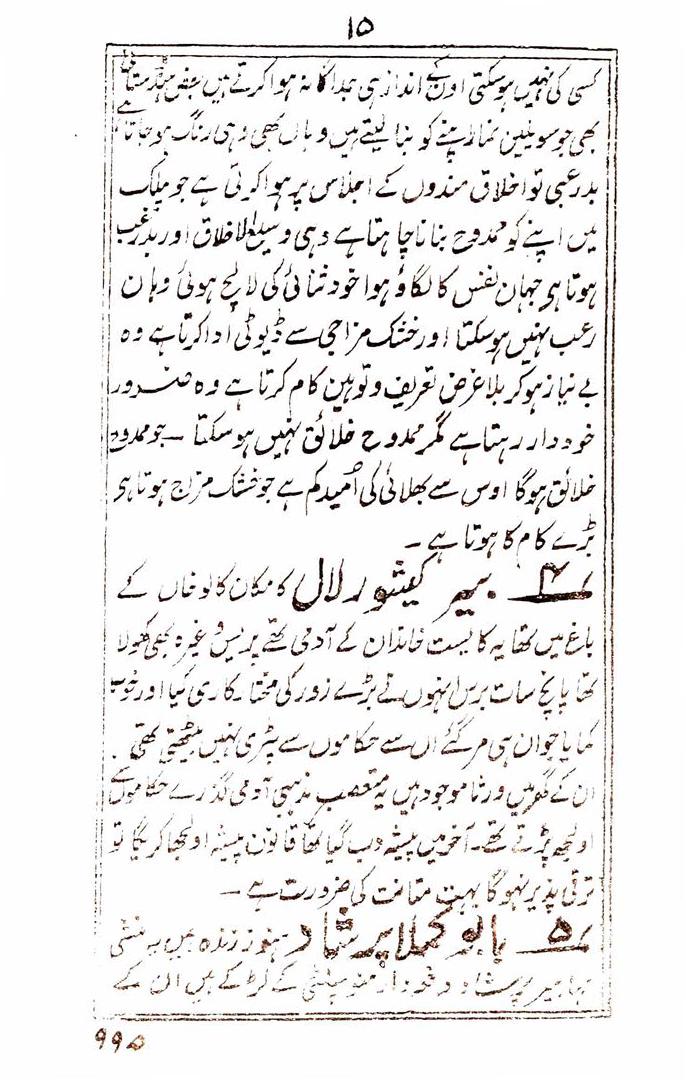 ۱۵
کسی کی نہیں ہوسکتی اون کے انداز ہی جداگانہ ہوا کرتے ہیں بعض ہندوستانی
بھی جو سویلین نما اپنے کو بنا لیتے ہیں وہاں بھی وہی رنگ ہوجاتا ہے
بدرعبی تو اخلاق مندوں کے اجلاس پر ہوا کرتی ہے جو ملک
میں اپنے کو ممدوح بنانا چاہتا ہے وہی وسیع الاخلاق اور بدرعب
ہوتا ہی جہان نفس کا لگاؤ ہوا خود ثنائی کی لالچ ہوئی وہان
رعب نہیں ہوسکتا اور خشک مزاجی سے ڈیوٹی ادا کرتا ہے وہ
بے نیاز ہوکر بلا غرض تعریف و توہین کام کرتا ہے وہ ضرور
خوددار رہتا ہے مگر ممدوح خلائق نہیں ہوسکتا ۔ جو ممدوح
خلائق ہوگا اوس سے بھلائی کی اُمید کم ہے جو خشک مزاج ہوتا ہی
بڑے کام کا ہوتا ہے ۔
۴ کیشور لال کا مکان کالو خاں کے
باغ میں تھا یہ کایست خاندان کے آدمی تھے پریس وغیرہ بھی کھولا
تھا پانچ سات برس انہوں نے بڑے زور کی مختار کاری کیا اور خوب
کمایا جوان ہی مرگئے ان سے حکاموں سے پٹری نہیں بیٹھتی تھی
ان کے گھر میں ورثا موجود ہیں یہ متعصب مذہبی آدمی گذرے حکاموں سے
اولجھ پڑتے تھے ۔ آخر میں پیشہ دب گیا تھا قانون پیشہ اولجھا کریگا تو
ترقی پذیر نہوگا بہت متانت کی ضرورت ہے ۔
۵ بابو کملا پرشاد ہنوز زندہ ہیں یہ منشی
مہابیر پرشاد کے لڑکے ہیں ان کے
۹۹۵